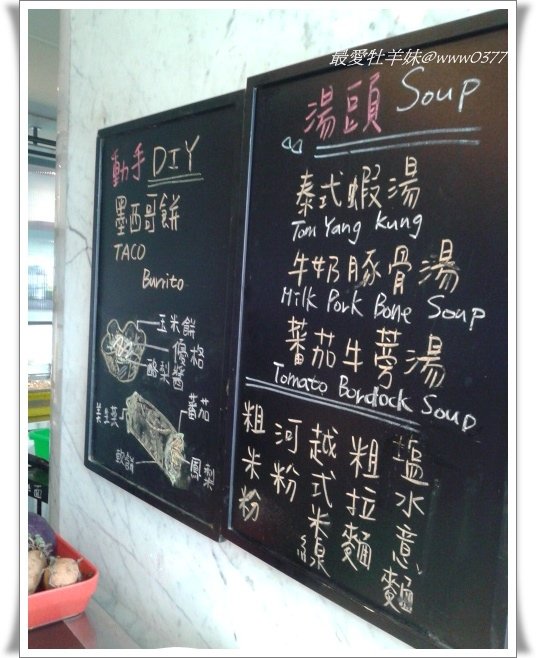 最愛牡羊妹@www0377
動手 DIY
墨西哥餅
TACO
Burrito
玉米餅
優格
酪梨醬
蕃茄
生菜
軟餅
鳳梨
湯頭 Soup
泰式蝦湯
Tom Yang Kung
牛奶豚骨湯
Milk Pork Bone Soup
蕃茄牛蒡湯
Tomato Bordock Soup
粗米粉
河粉
越式米線
粗拉麵
塩水意麵